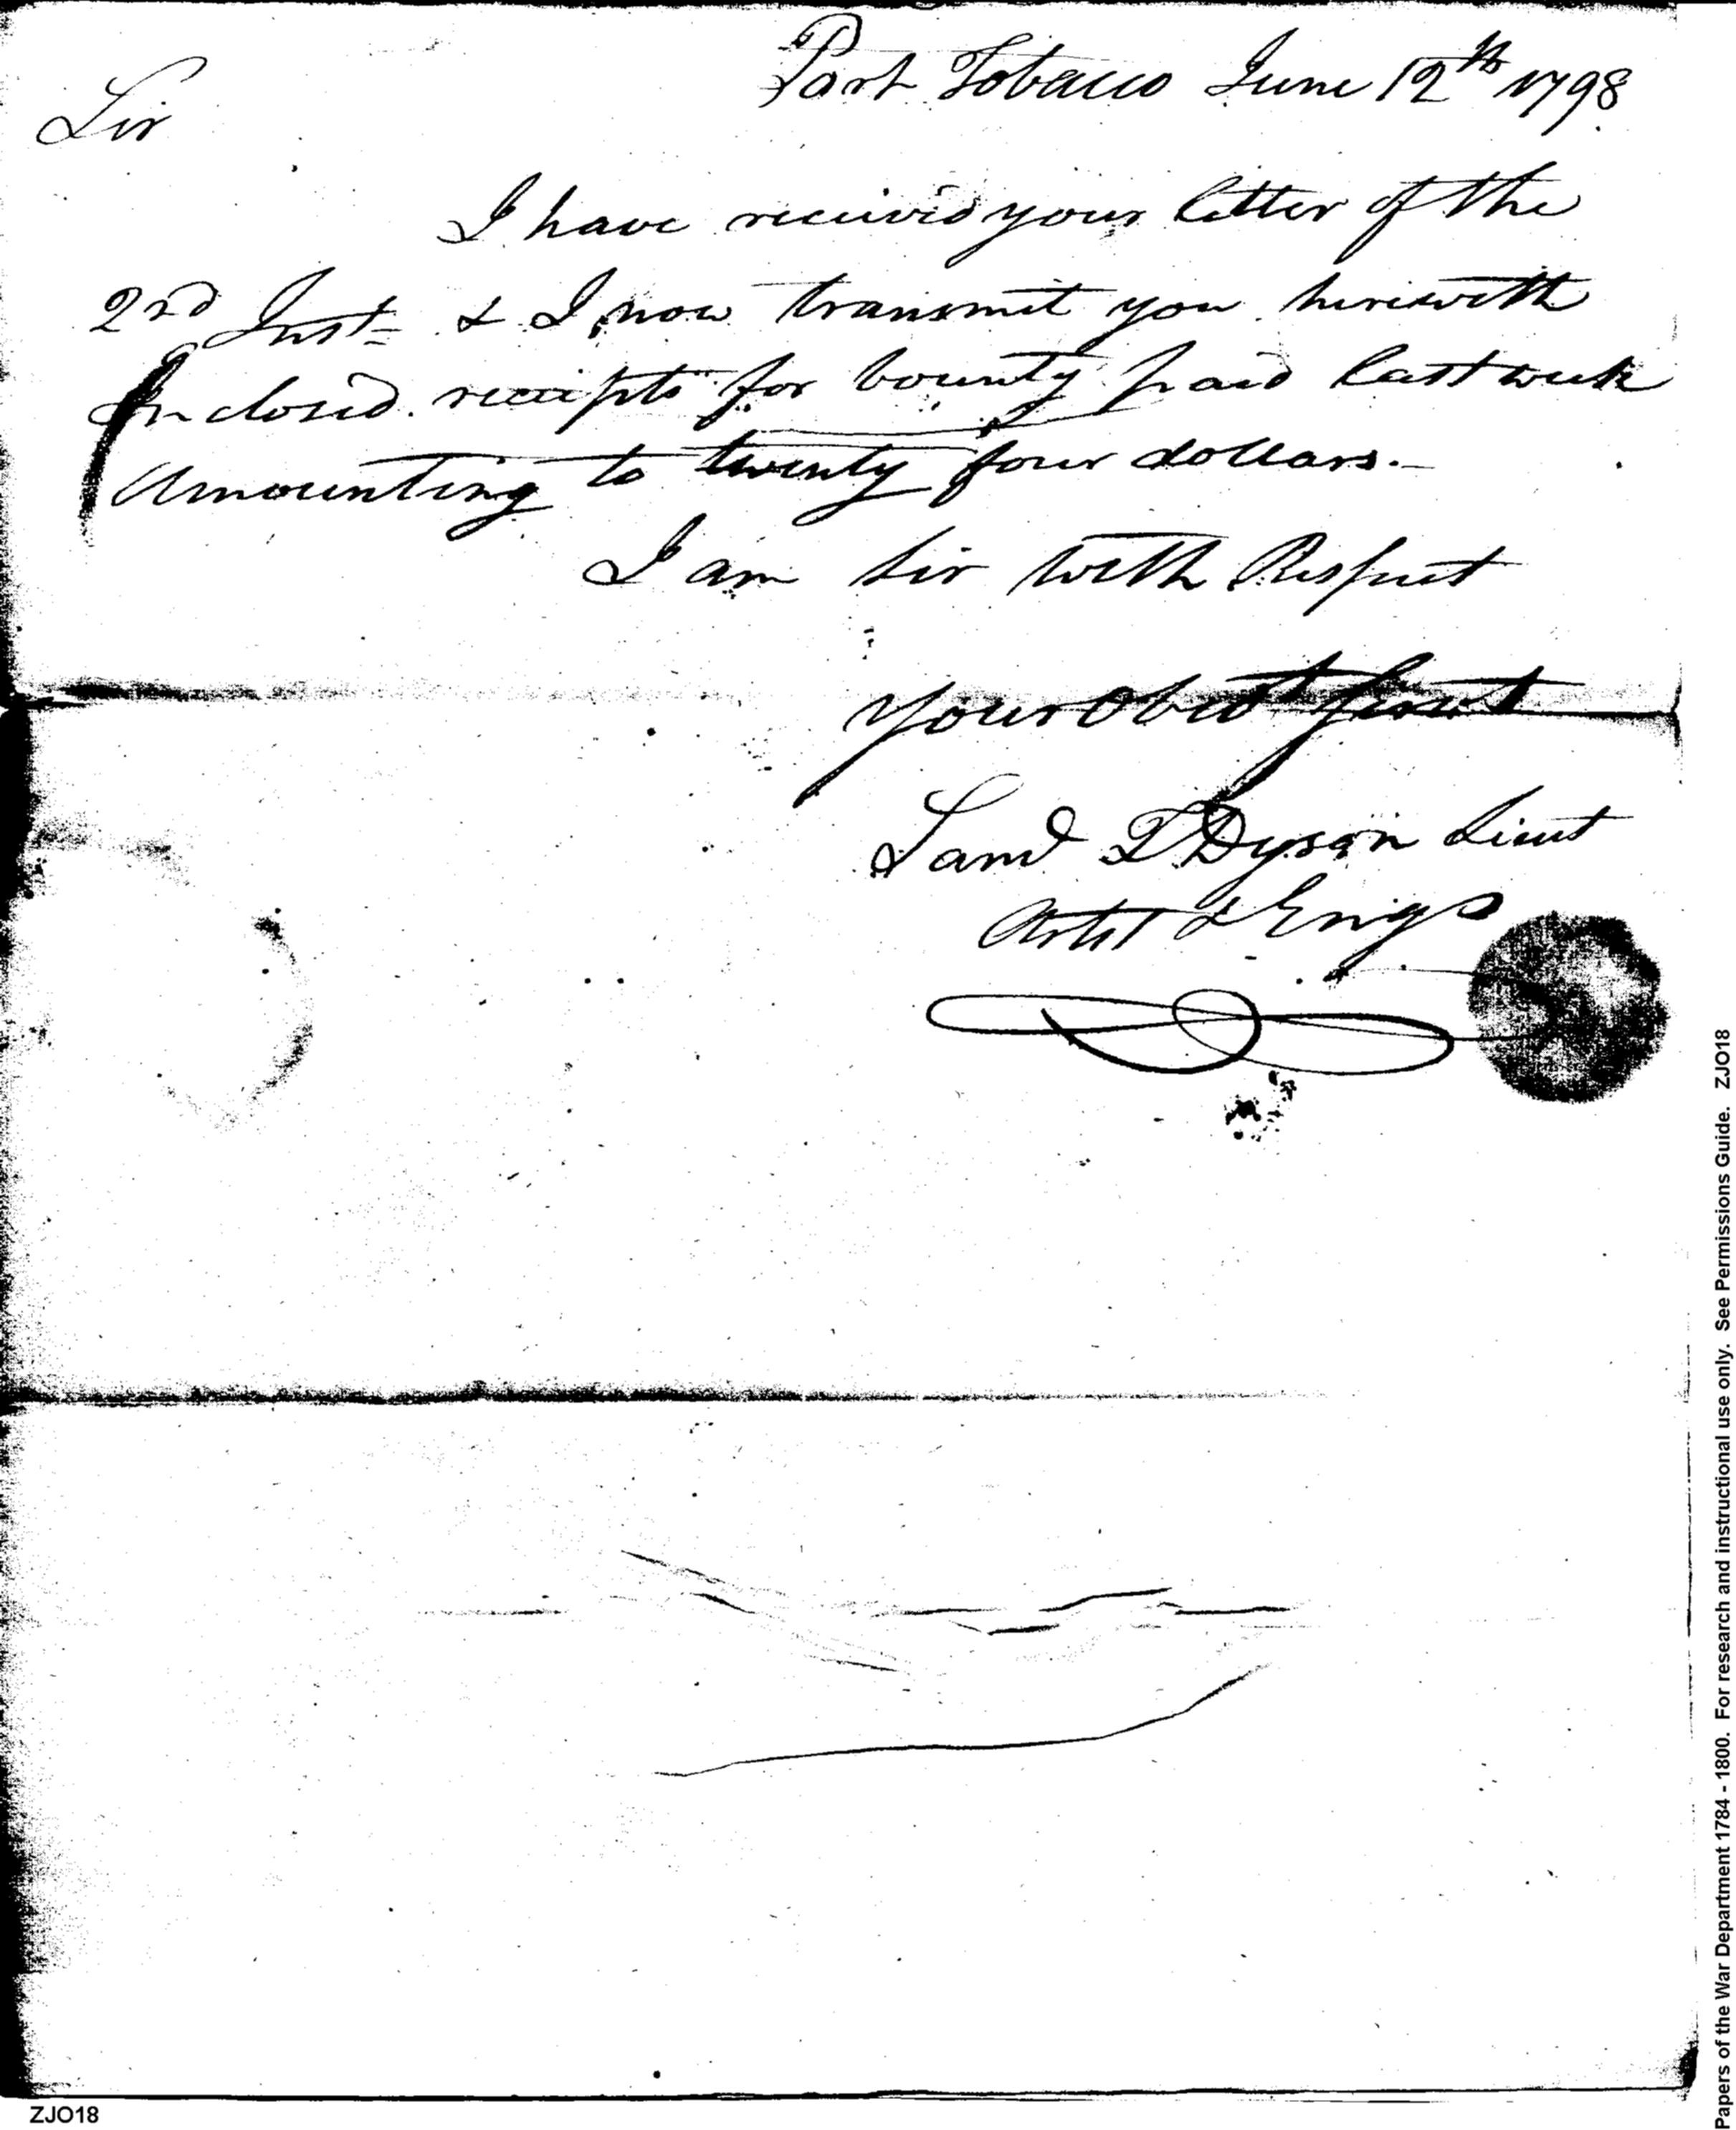 Port Tobacco June 12th 1798
Sir
I have received your letter of the
2nd Inst & I now transmit you herewith
Inclosed receipts for bounty paid last week
Amounting to twenty four dollars.
I am Sir with Respect
your Obed t Servt
Saml T Dyson Lieut
Artil & Engs
ZJO18
Papers of the War Department 1784 - 1800. For research and instructional use only. See Permissions Guide. ZJO18